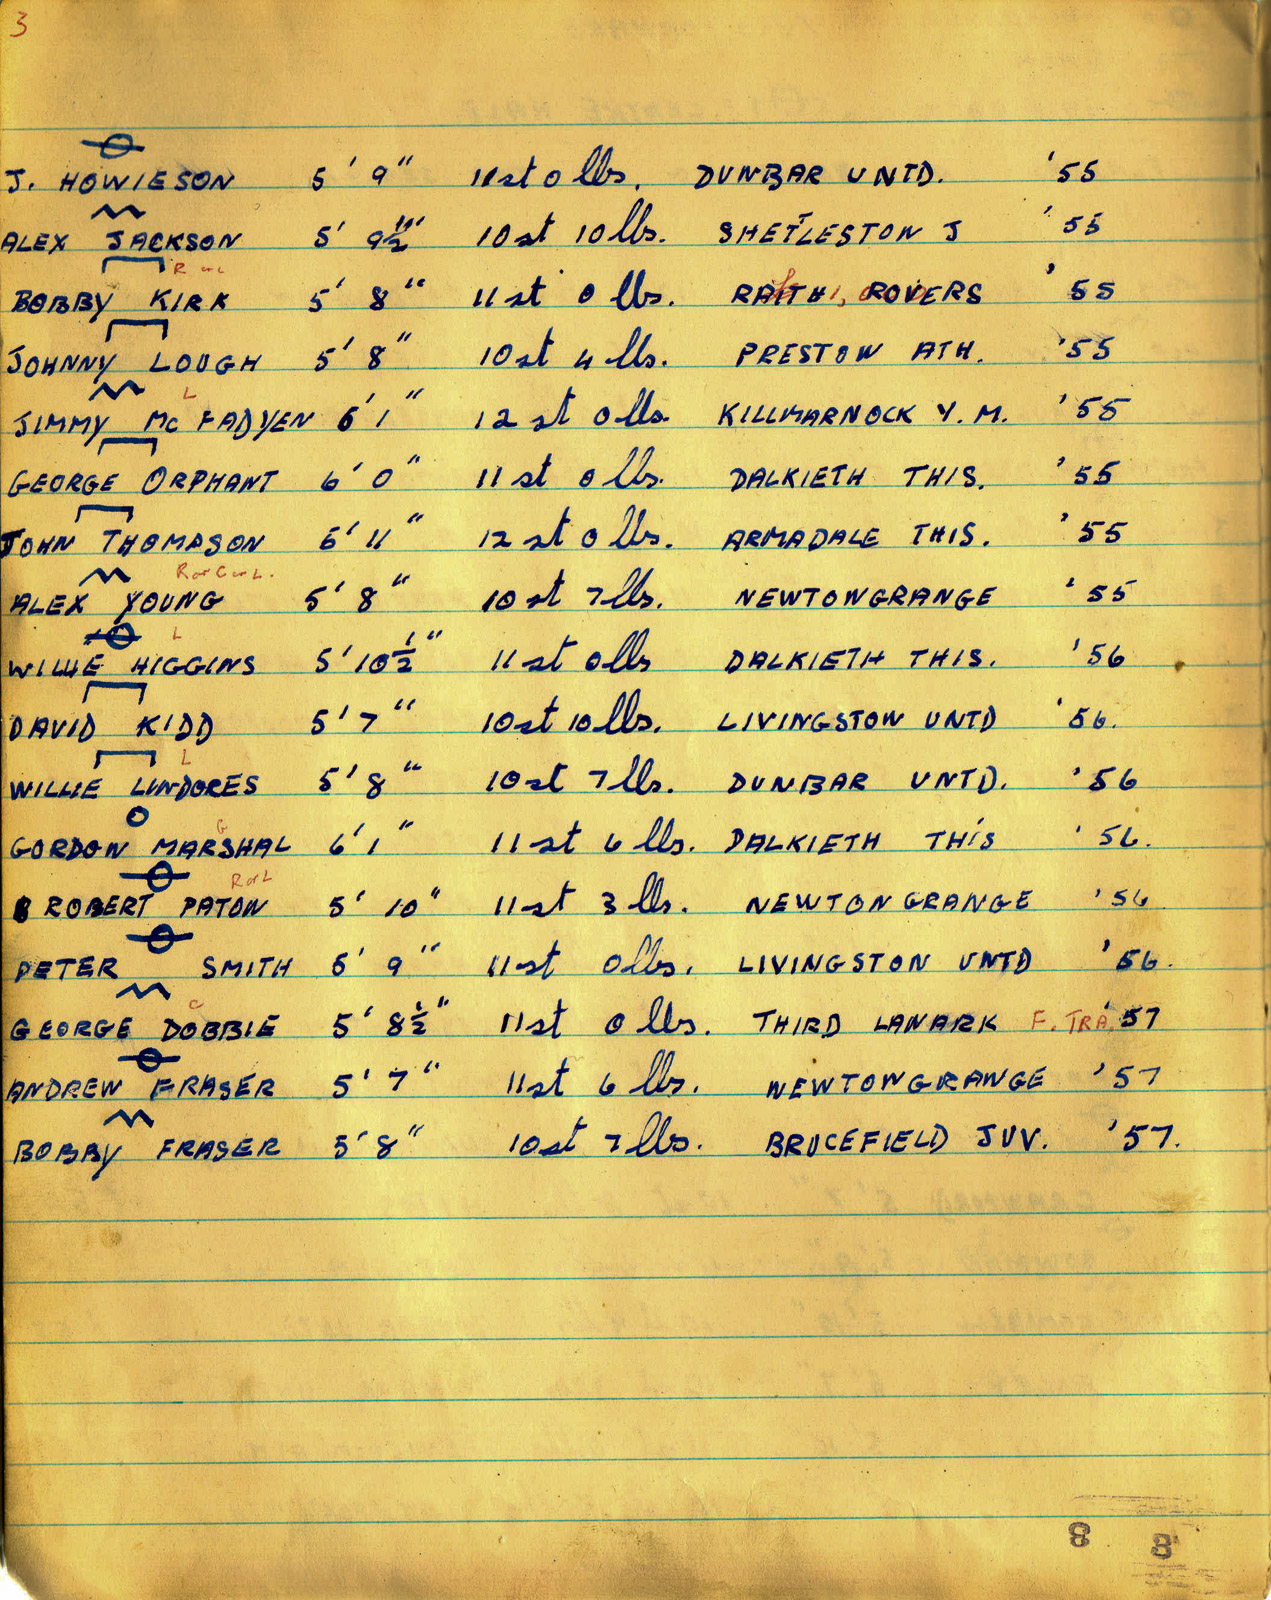 3
J. HOWIESON 5' 9" 11st 0 lbs. DUNBAR UNTD. '55
ALEX JACKSON 5' 9½" 10st 10 lbs. SHETTLESTON J '55
R or L
BOBBY KIRK 5' 8" 11st 0 lbs. RAITH ROVERS '55
JOHNNY LOUGH 5' 8" 10st 4 lbs. PRESTON ATH. '55
L
JIMMY Mc FADYEN 6' 1" 12st 0 lbs. KILLMARNOCK Y.M. '55
GEORGE ORPHANT 6' 0" 11st 0 lbs. DALKIETH THIS. '55
JOHN THOMPSON 5' 11" 12st 0 lbs. ARMADALE THIS. '55
R or C or L.
ALEX YOUNG 5' 8" 10st 7 lbs. NEWTONGRANGE '55
L
WILLIE HIGGINS 5' 10½" 11st 0 lbs DALKIETH THIS. '56
DAVID KIDD 5' 7" 10st 10 lbs. LIVINGSTON UNTD '56.
L
WILLIE LINDORES 5' 8" 10st 7 lbs. DUNBAR UNTD. '56
G
GORDON MARSHAL 6' 1" 11st 6 lbs. DALKIETH THIS '56.
R or L
ROBERT PATON 5' 10" 11st 3 lbs. NEWTONGRANGE '56
PETER SMITH 5' 9" 11st 0 lbs. LIVINGSTON UNTD '56.
C
GEORGE DOBBIE 5' 8½" 11st 0 lbs. THIRD LANARK F. TRA. '57
ANDREW FRASER 5' 7" 11st 6 lbs. NEWTONGRANGE '57
BOBBY FRASER 5' 8" 10st 7 lbs. BRUCEFIELD JUV. '57.
8 8